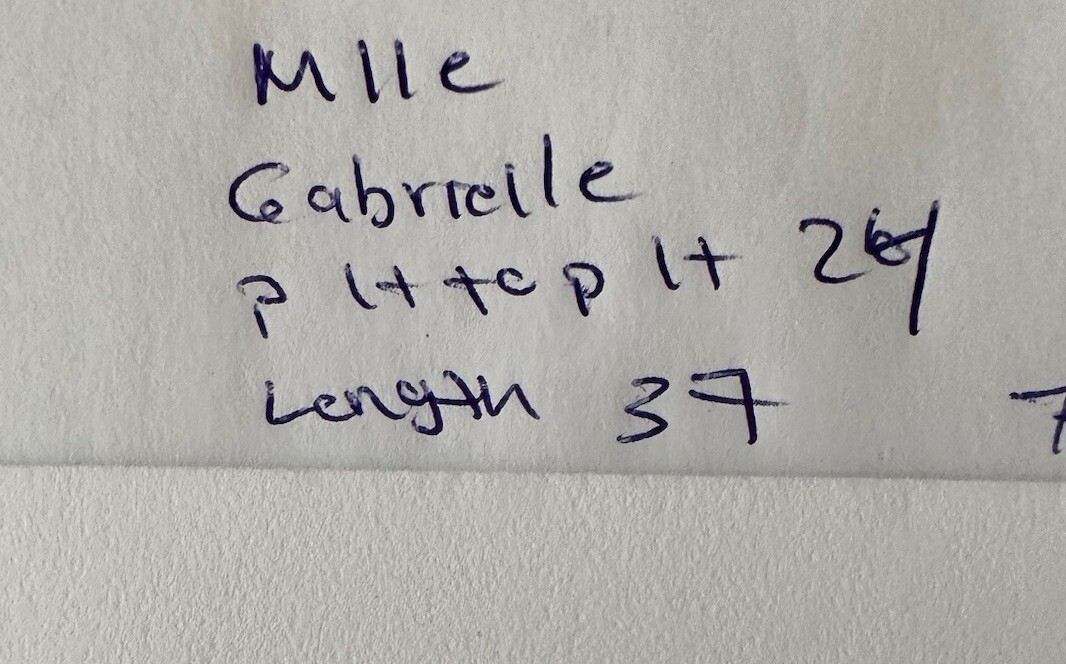 Mlle
Gabrielle
P 1t to p 1t
Length 37 7